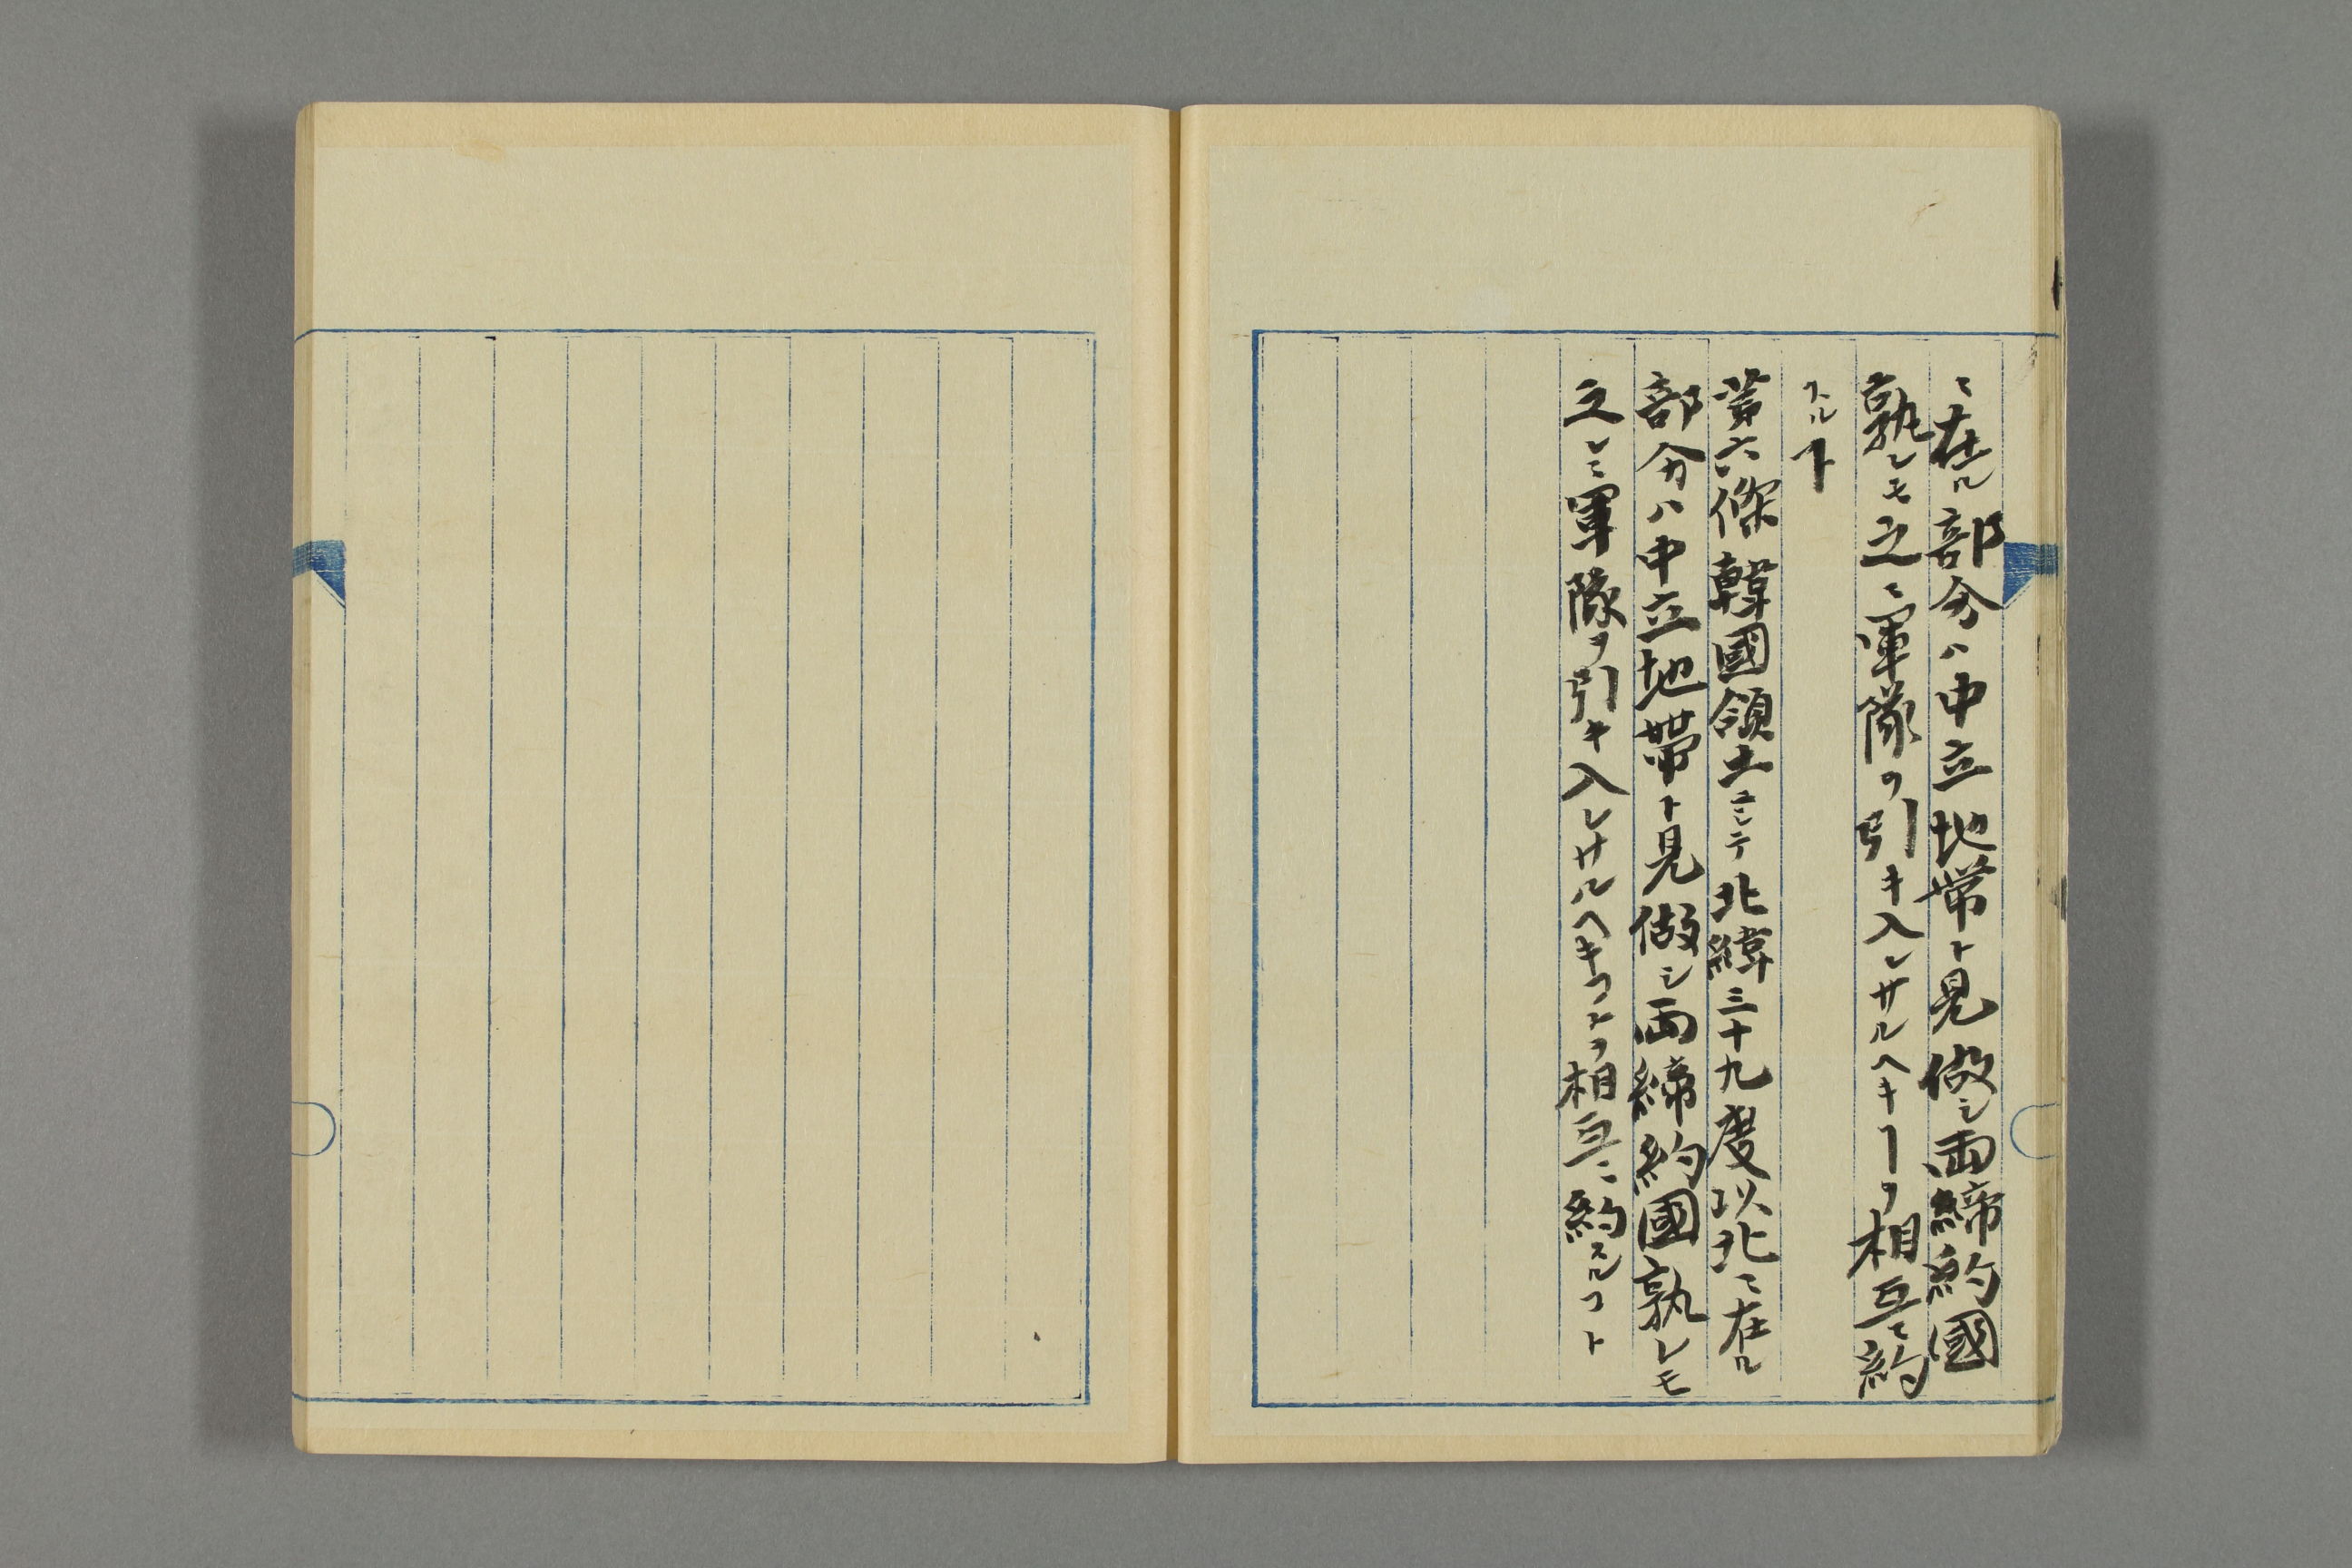 ニ在ル部分ハ中立地帯ト見做シ両締約國
孰レモ之ニ軍隊ヲ引キ入レサルヘキヿヲ相互ニ約
スルヿ
第六條韓國領土ニシテ北緯三十九度以北ニ在ル
部分ハ中立地帯ト見做シ両締約國孰レモ
之レニ軍隊ヲ引キ入レサルヘキコトヲ相互ニ約スルコト